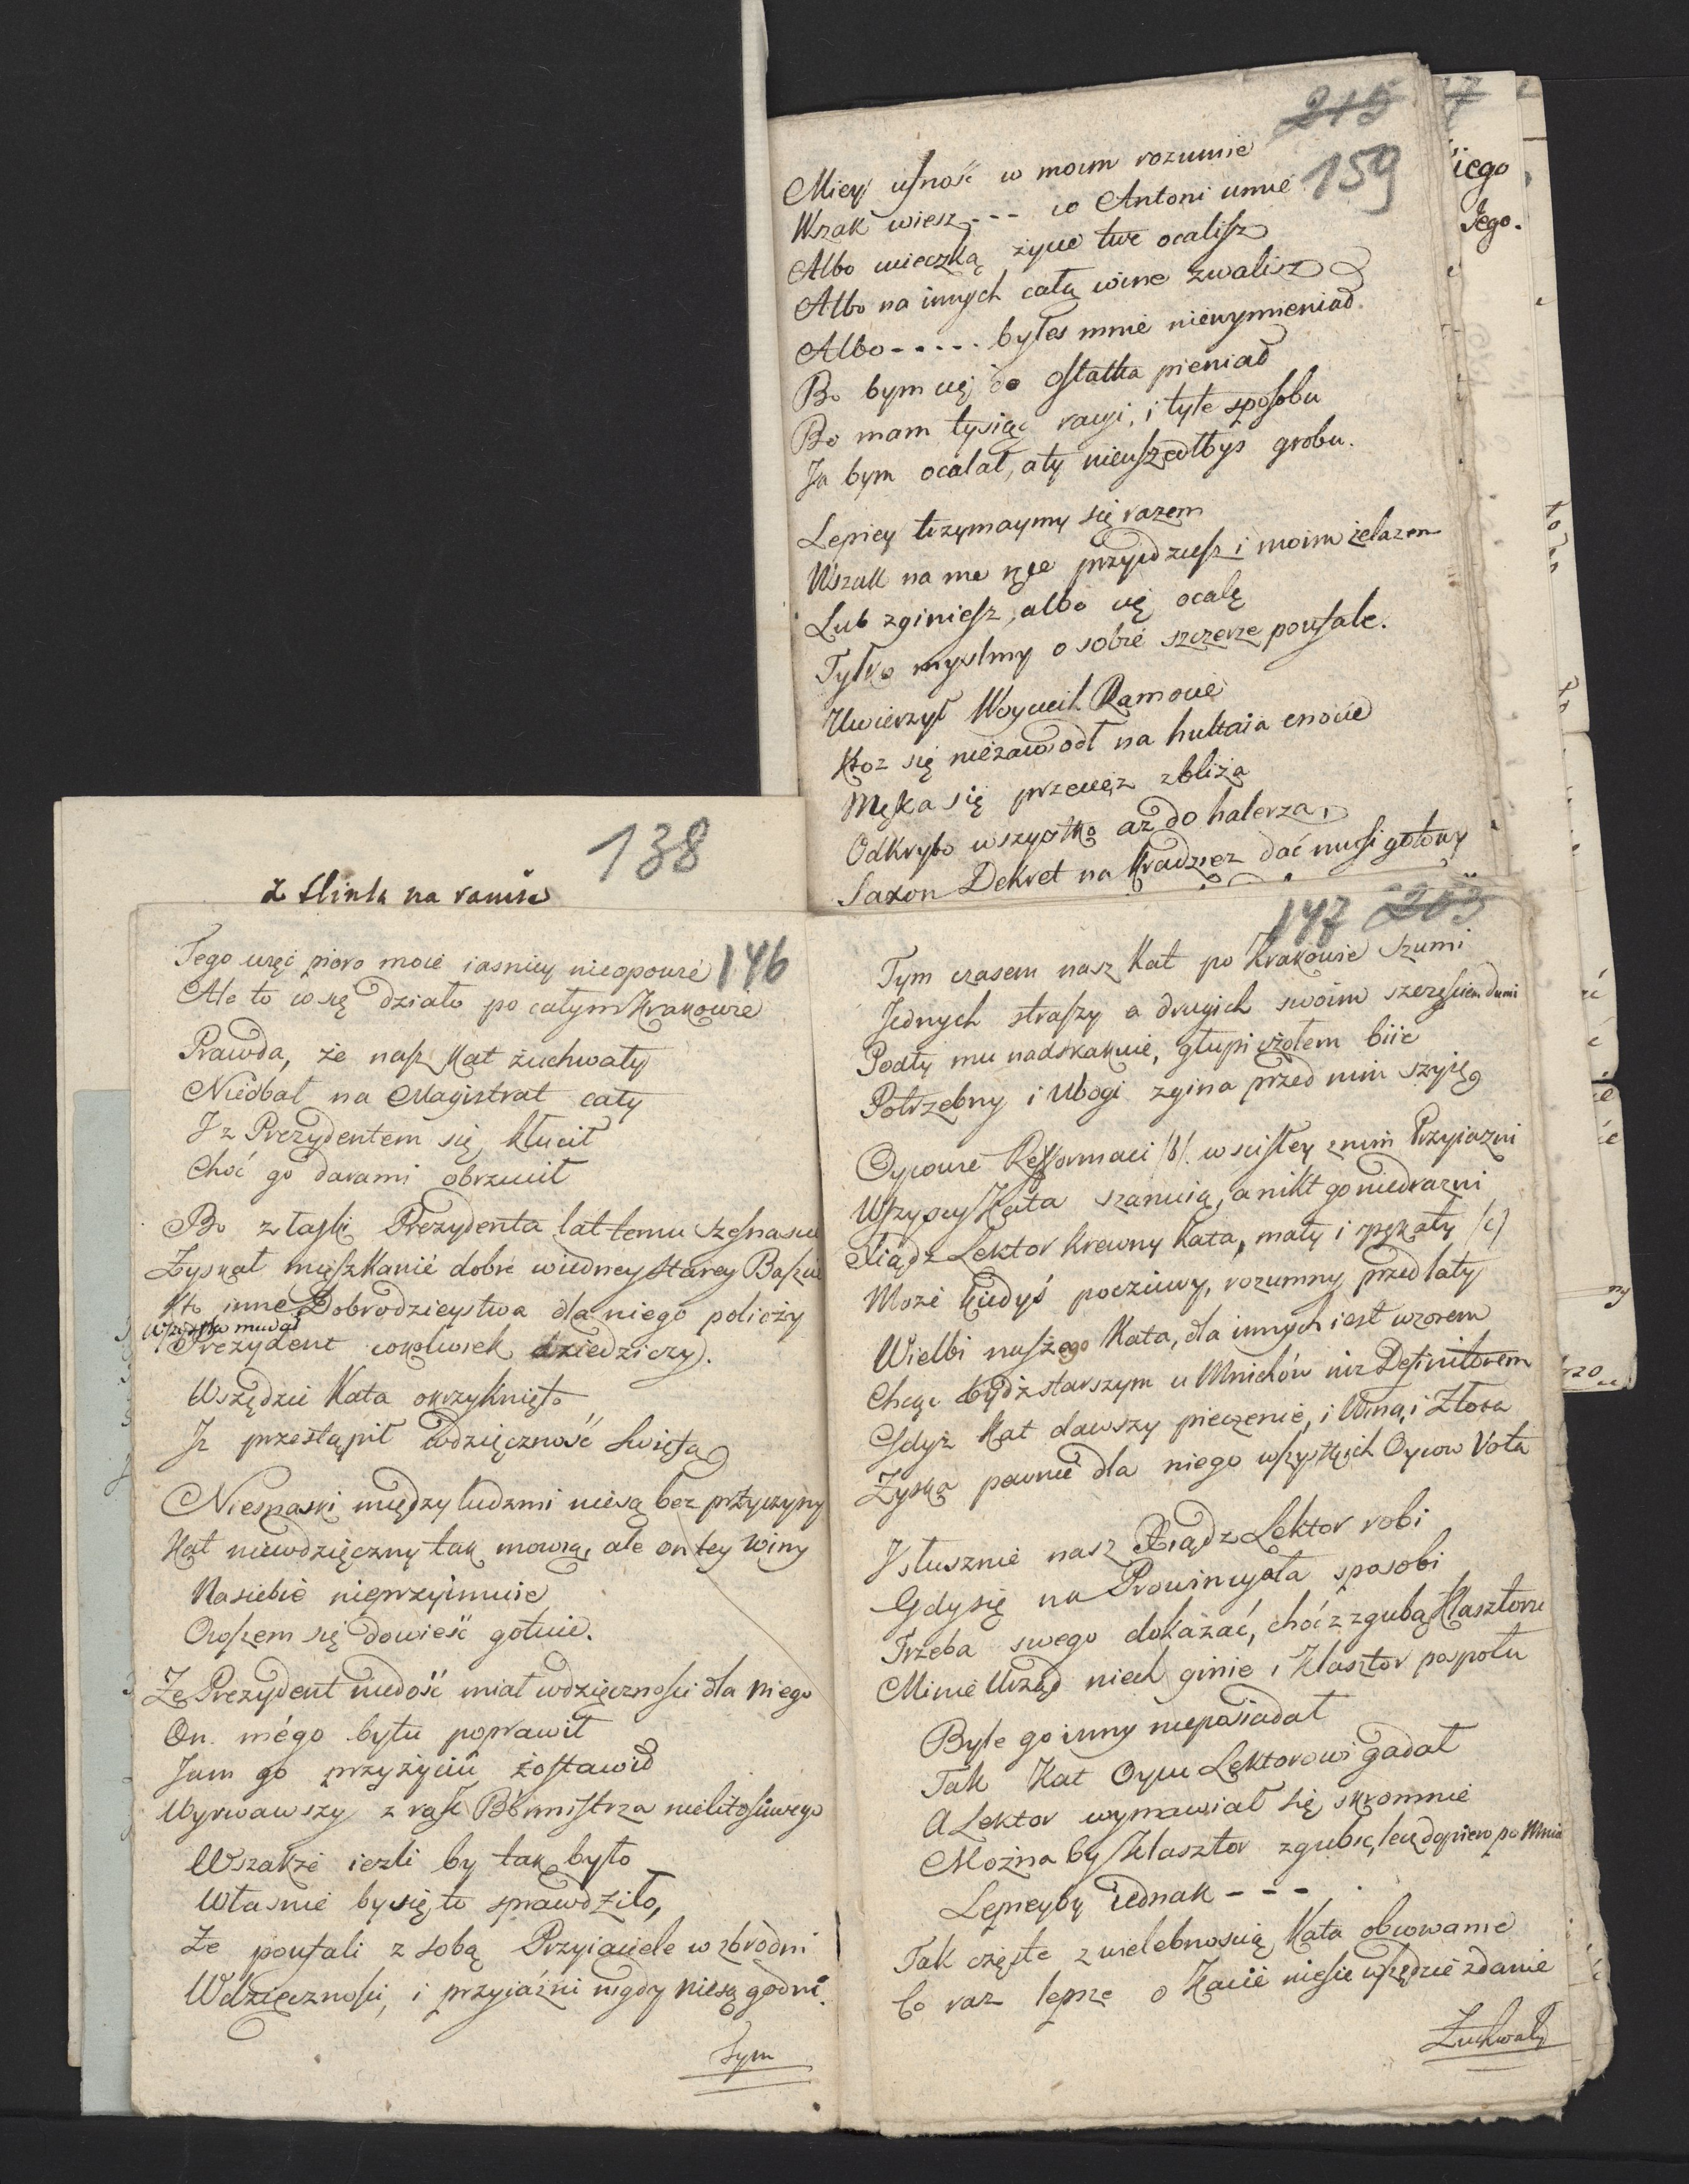 215
159
Miey ufność w moim rozumie
Wszak wiesz --- co Antoni umie
Albo ucieczką życie twe ocalisz
Albo na innych całą winę zwalisz
Albo ----- byłeś mnie niewymieniał
Bo bym cię do ostatka pieniał
Bo mam tysiąc racyi, i tyle sposobu
Ja bym ocalał, aty nieuszedłbyś grobu.
Lepiey trzymaymy się razem
Wszak na me ręce przyidziesz i moim żelazem
Lub zginiesz, albo cię ocalę
Tylko myślmy o sobie szczerze poufale.
Uwierzył Woyciech Ramocie
Ktoz się niezawiodł na hultaia cnocie
Męka się przecięz zbliża
Odkryto wszystko aż do halerza,
Saxon Dekret na kradzież dać musi gotowy
iego
Jego.
138
z flinta na ramie
146
Tego wręć pioro moie iasniey nieopowie
Ale to co się działo po całym Krakowie
Prawda, że nasz Kat zuchwały
Niedbał na Magistrat cały
I z Prezydentem się kłucił
Choć go darami obrzucił
Bo z łaski Prezydenta lat temu szesnascie
Zyskał mieszkanie dobre wiedney starey Baszcie
Kto inne Dobrodzieystwa dla niego policzy
Wszystko mu dał
Prezydent cokolwiek dziedziczy.
Wszędzie Kata okrzyknięto
Iz przestąpił wdzięczność świętą
Niesnaski między ludzmi niesą bez przyczyny
Kat niewdzięczny tak mowią, ale on tey winy
Nasiebie nieprzyimuie
Owszem się dowieść gotuie.
Ze Prezydent niedość miał wdzięczności dla niego
On mego bytu poprawił
Jam go przyżyciu zostawił
Wyrwawszy z rąk Bormistrza nielitościwego
Wszakże iezli by tak było
Własnie by się to sprawdziło,
Ze poufali z sobą Przyiaciele w zbrodni
Wdzięcznosci, i przyiaźni nigdy niesą godni.
Tym
147 203
Tym czasem nasz Kat po Krakowie szumi
Jednych straszy a drugich swoim szczęściem dumi
Podły mu nadskakuie, głupi czołem biie
Potrzebny i Ubogi zgina przed nim szyię
Oycowie Reformaci /b/. w scisley z nim Przyiazni
Wszyscy Kata szanuią, a nikt go niedrazni
Xiądz Lektor krewny Kata, mały i pękaty /c/
Może kiedyś poczciwy, rozumny, przed laty
Wielbi naszego Kata, dla innych iest wzorem
Chcąc bydź starszym u Mnichów niz Definitorem
Gdyż Kat dawszy pieczenie, i Wina, i Złota
Zyska pewnie dla niego wszystkich Oycow Vota
I słusznie nasz Xiądz Lektor robi
Gdy się na Prowincyała sposobi
Trzeba swego dokazać, choć z zgubą Klasztoru
Minie Urząd niech ginie i Klasztor pospołu
Byle go inny nieposiadał
Tak Kat Oycu Lektorowi gadał
A Lektor wymawiał się skromnie
Można by Klasztor zgubić, lecz dopiero po Mnie
Lepieyby iednak --- .
Tak częste z wielebnoscią Kata obcowanie
Co raz lepsze o Kacie niesie wszędzie zdanie
Zuchwały